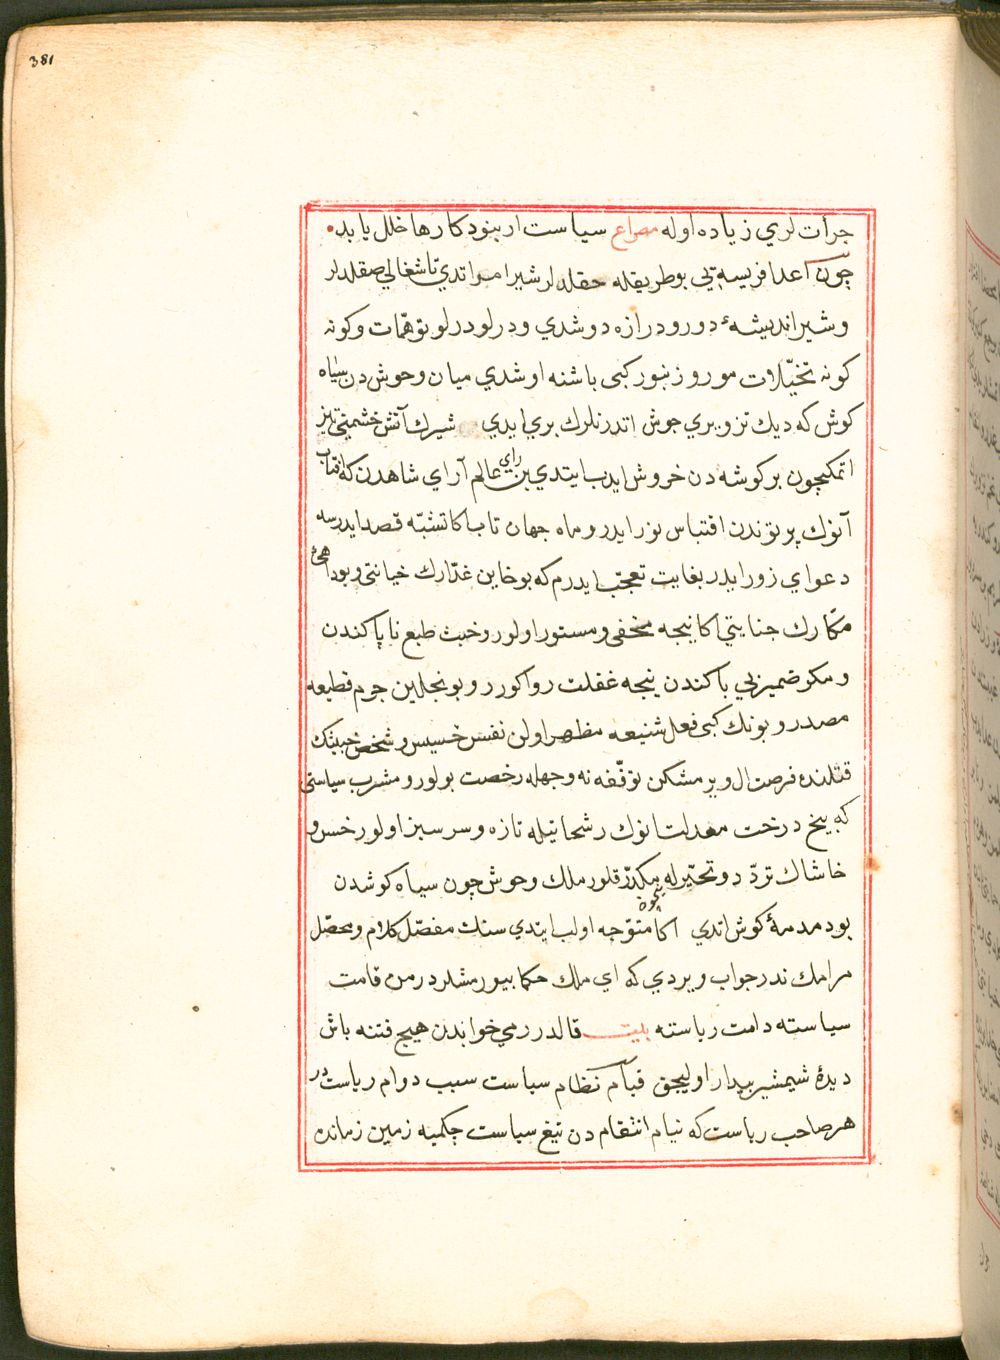 381
جرأت لري زياده اوله مصراع سياست ار نبود كارها خلل يابد
چون اعدا فريسه يي بو طريقله حقله لر شير امر اتدي تا شغالي صقلديلر
و شير انديشهٔ دور و درازه دوشدي و درلو درلو توهّمات و كونه
كونه تخيّلات مور و زنبور كبي باشنه اوشدي ميان وحوش دن سياه
كوش كه ديك تزويري جوش اتدرنلرك بري ايدي شيرك آتش خشمني تيز
اتمكيچون بر كوشه دن خروش ايدب ايتدي بن راي عالم آراي شاهدن كه افتاب
آنوك پرتوندن اقتباس نور ايدر و ماه جهان تاب اكا تشبّه قصد ايدرسه
دعواي زور ايدر بغايت تعجّب ايدرم كه بو خاين غدّارك خيانتي و بو داهئ
مكّارك جنايتي اكا نيجه مخفي و مستور اولور و خبث طبع ناپاكندن
و مكر ضمير بي باكندن نيجه غفلت روا كورر و بونجلين جرم فظيعه
مصدر و بونك كبي فعل شنيعه مظهر اولن نفس خسيس و شخص خبيثك
قتلنده فرصت ال ويرمشكن توقّفه نه وجهله رخصت بولور و مشرب سياستي
كه بيخ درخت معدلت انوك رشحاتيله تازه و سرسبز اولور خس و
خاشاك تردّد و تحيّرله نيچون مكدّر قلور ملك وحوش چون سياه كوشدن
بو دمدمهٔ كوش اتدي اكا متوّجه اولب ايتدي سنك مفصّل كلام و محصّل
مرامك ندر جواب ويردي كه اي ملك حكما بيورمشلردر من قامت
سياسته دامت رياسته بيت قالدرر مي خوابدن هيچ فتنه باش
ديدهٔ شيمشير بيدار اوليجق قيام نظام سياست سبب دوام رياست در
هر صاحب رياست كه نيام انتقام دن تيغ سياست چكميه زمين زمانده